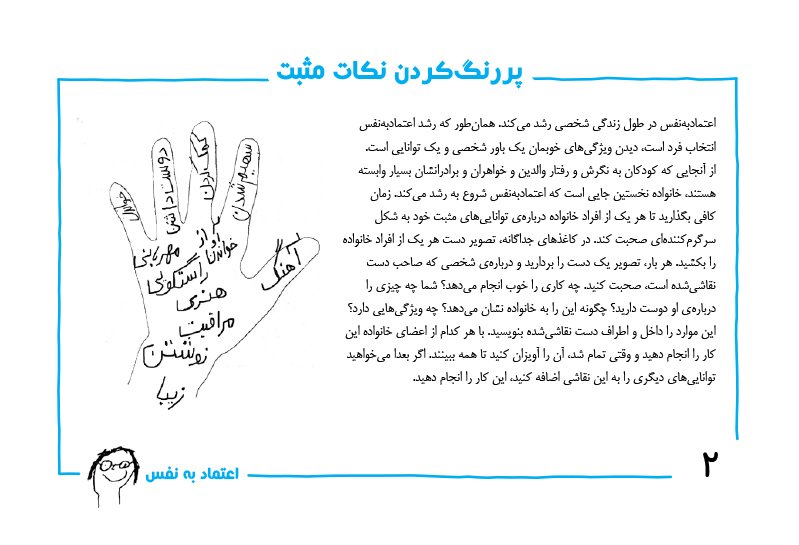 پررنگ‌کردن نکات مثبت
اعتمادبه‌نفس در طول زندگی شخصی رشد می‌کند. همان‌طور که رشد اعتمادبه‌نفس
انتخاب فرد است، دیدن ویژگی‌های خوبمان یک باور شخصی و یک توانایی است.
از آنجایی که کودکان به نگرش و رفتار والدین و خواهران و برادرانشان بسیار وابسته
هستند، خانواده نخستین جایی است که اعتمادبه‌نفس شروع به رشد می‌کند. زمان
کافی بگذارید تا هر یک از افراد خانواده درباره‌ی توانایی‌های مثبت خود به شکل
سرگرم‌کننده‌ای صحبت کند. در کاغذهای جداگانه، تصویر دست هر یک از افراد خانواده
را بکشید. هر بار، تصویر یک دست را بردارید و درباره‌ی شخصی که صاحب دست
نقاشی‌شده است، صحبت کنید. چه کاری را خوب انجام می‌دهد؟ شما چه چیزی را
درباره‌ی او دوست دارید؟ چگونه این را به خانواده نشان می‌دهد؟ چه ویژگی‌هایی دارد؟
این موارد را داخل و اطراف دست نقاشی‌شده بنویسید. با هر کدام از اعضای خانواده این
کار را انجام دهید و وقتی تمام شد، آن را آویزان کنید تا همه ببینند. اگر بعدا می‌خواهید
توانایی‌های دیگری را به این نقاشی اضافه کنید، این کار را انجام دهید.
سهیم شدن
کمک کردن
دوست داشتن
آواز
خواندن
مهربانی
راستگویی
آهنگ
هنری
مراقبت
نوشتن
زیبا
۲
اعتماد به نفس